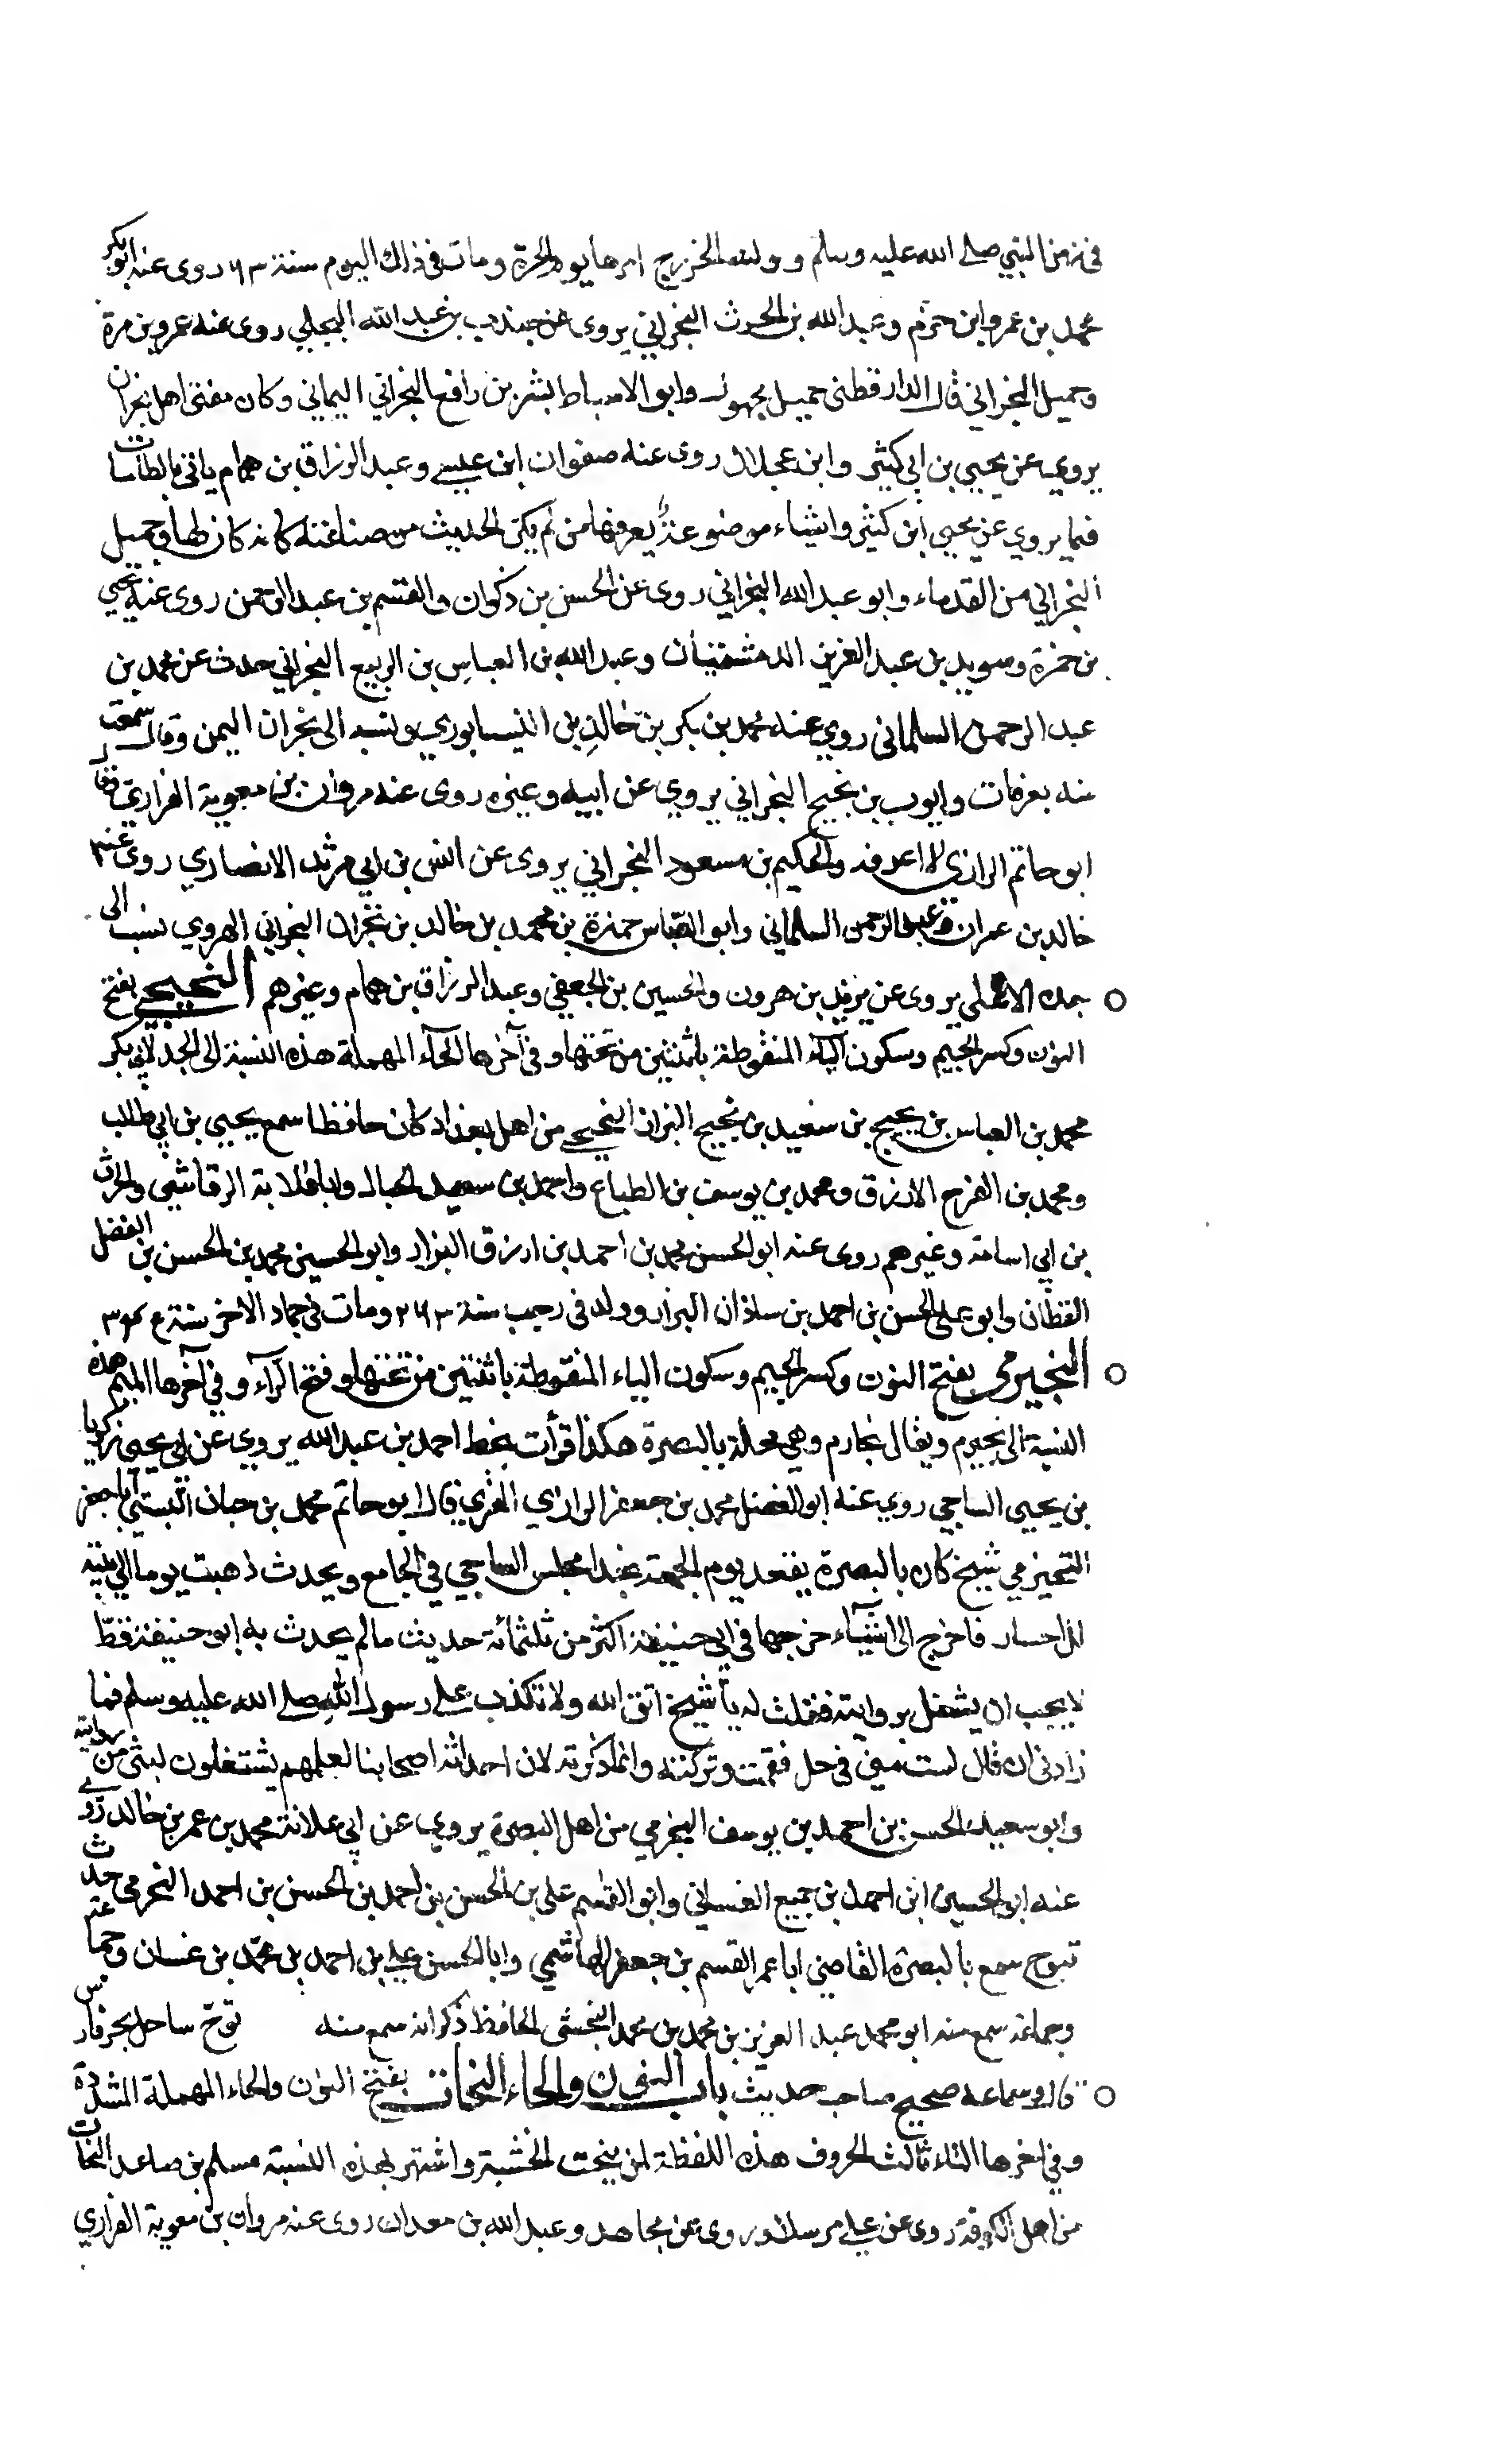 في زمن النبي صلى الله عليه وسلم وولته الخزرج امرها يوم الحرة ومات في ذلك اليوم سنة ٦٣ روى عنه ابو بكر
محمد بن عمرو ابن حزم وعبد الله بن الحرث النجراني يروى عن جندب بن عبد الله البجلي روى عنه عمرو بن مرة
وحميل النجراني قال الدارقطني حميل مجهول وابو الاسباط بشر بن رافع النجراني اليماني وكان مفتى اهل نجران
يروي عن يحيى بن ابي كثير وابن عجلان روى عنه صفوان ابن عيسى وعبد الرزاق بن همام ياتى بالطامات
فيما يروي عن يحيى ابن كثير واشياء موضوعة يعرفها من لم يكن الحديث من صناعته كانه كان لها وحميل
النجراني من القدماء وابو عبد الله النجراني روى عن الحسن بن ذكوان والقسم بن عبد الرحمن روى عنه يحيى
بن حمزة وسويد بن عبد العزيز الدمشقيان وعبد الله بن العباس بن الربيع النجراني حدث عن محمد بن
عبد الرحمن السلماني روي عنه محمد بن بكر بن خالد بن النيسابوري ونسبه الى نجران اليمن وقال سمعت
منه بعرفات وايوب بن نجيح النجراني يروي عن ابيه وغيره روى عنه مروان بن معوية الفزاري وقال
ابو حاتم الرازي لا اعرفه والحكيم بن مسعود النجراني يروى عن انس بن ابي مرثد الانصاري روى عنه
خالد بن عمران وعبد الرحمن السلماني وابو العباس حمزة بن محمد بن خالد بن نجران النجراني الهروي نسب الى
جده الاعلى يروى عن يزيد بن هرون والحسين بن الجعفي وعبد الرزاق بن همام وغيرهم النجيحي بفتح
النون وكسر الجيم وسكون الياء المنقوطة باثنتين من تحتها وفي آخرها الحاء المهملة هذه النسبة الى الجد لابي بكر
محمد بن العباس بن نجيح بن سعيد بن نجيح البزاز النجيحي من اهل بغداد كان حافظا سمع يحيى بن ابي طالب
ومحمد بن الفرج الازرق ومحمد بن يوسف بن الطباع واحمد بن سعيد الجمال وابا قلابة الرقاشي والحرث
بن ابي اسامة وغيرهم روى عنه ابو الحسن محمد بن احمد بن ارزق البزاز وابو الحسين محمد بن الحسن بن الفضل
القطان وابو على الحسن بن احمد بن ساذان البزاز وولد في رجب سنة ٢٦٣ ومات في جماد الاخر سنة
النجيرمي بفتح النون وكسر الجيم وسكون الياء المنقوطة باثنتين من تحتها وفتح الراء وفي آخرها الميم هذه
النسبة الى نجيرم ويقال نجارم وهي محلة بالبصرة هكذا قرأت بخط احمد بن عبد الله يروي عن ابي يحيى زكريا
بن يحيى الساجي روي عنه ابو الفضل محمد بن جعفر الرازي المقري قال ابو حاتم محمد بن حبان البستي ابا جعفر
النجيرمي شيخ كان بالبصرة يقعد يوم الجمعة عند مجلس الساجي في الجامع ويحدث ذهبت يوما الى بيته
للاحسار فاخرج الى اشياء خرجها في ابي حنيفة اكثر من ثلثمائة حديث مالم يحدث به ابو حنيفة قط
لا يجب ان يشتغل بروايته فقلت له يا شيخ اتق الله ولا تكذب على رسول الله صلى الله عليه وسلم فما
زادني ان قال لست مني في حل فقمت وتركته وانما ذكرته لان احداث اصحابنا لعلهم يشتغلون لبشئ من روايته
وابو سعيد الحسن بن احمد بن يوسف النجرمي من اهل البصرة يروي عن ابي علانة محمد بن عمر بن خالد روى
عنه ابو الحسين ابن احمد بن جميع الغساني وابو القاسم على بن الحسن بن احمد بن الحسن بن احمد النجرمي حدث
بتوج سمع بالبصرة القاضي ابا عمر القسم بن جعفر الهاشمي وابا الحسن على بن احمد بن محمد بن غسان
وجماعة سمع منه ابو محمد عبد العزيز بن محمد بن محمد النخشى الحافظ ذكر انه سمع منه توج ساحل بحر فارس
قال وسماعه صحيح صاحب حديث باب النون والحاء النحات بفتح النون والحاء المهملة المشددة
وفي اخرها التاء ثالث الحروف هذه اللفظة لمن ينحت الخشبة واشتهر لهذه النسبة مسلم بن صاعد النحات
من اهل الكوفة روى عن على مرسلا وروى عن مجاهد وعبد الله بن معدان روى عنه مروان بن معوية الفزاري